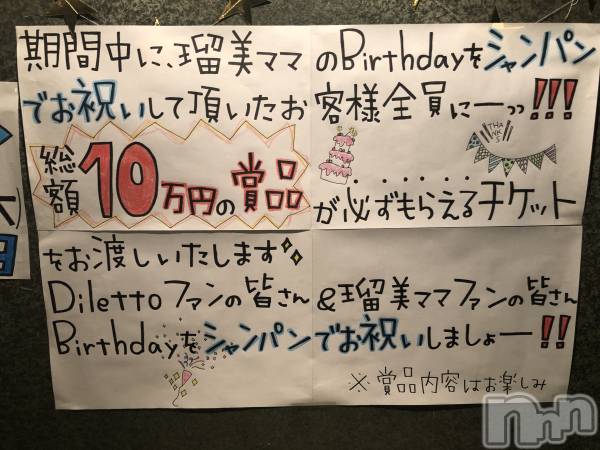 期間中に、瑠美ママのBirthdayをシャンパン
でお祝いして頂いたお客様全員にーっっ!!!
総額10万円の賞品
THANKS
が必ずもらえるチケット
をお渡しいたします
Dilettoファンの皆さん&瑠美ママファンの皆さん
Birthdayをシャンパンでお祝いしましょー!!
※賞品内容はお楽しみ